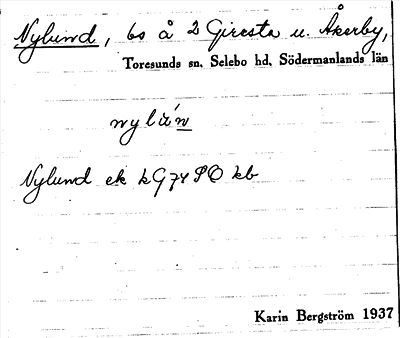 Nylund, bs å 2 Giresta u. Åkerby,
Toresunds sn, Selebo hd, Södermanlands län
nylún
Nylund ek kG74 SO kb
Karin Bergström 1937